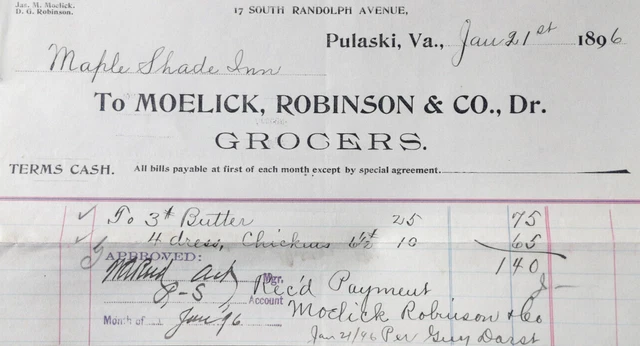 Jas. M. Moelick.
D. G. Robinson.
17 SOUTH RANDOLPH AVENUE,
Pulaski, Va., Jan 21st 1896
Maple Shade Inn
To MOELICK, ROBINSON & CO., Dr.
GROCERS.
TERMS CASH. All bills payable at first of each month except by special agreement.
To 3# Butter 25 75
4 dress, Chickens 6½# 10 65
140
APPROVED:
Mgr.
P-S Account
Month of Jan '96
Rec'd Payment
Moelick Robinson & Co
Jan 21/96 Per Guy Darst